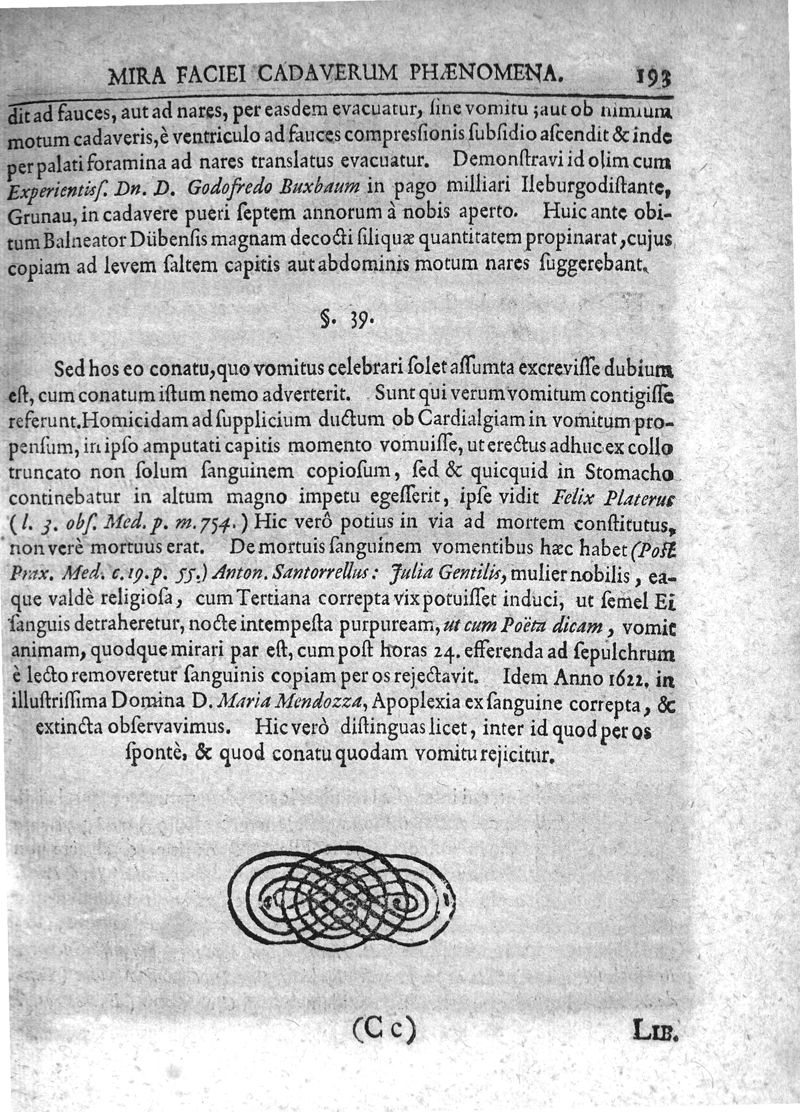 MIRA FACIEI CADAVERUM PHÆNOMENA. 193
dit ad fauces, aut ad nares, per easdem evacuatur, ſine vomitu ; aut ob nimium
motum cadaveris, è ventriculo ad fauces compreſſionis ſubſidio aſcendit & inde
per palati foramina ad nares translatus evacuatur. Demonſtravi id olim cum
Experientiſſ. Dn. D. Godofredo Buxbaum in pago milliari Ileburgo diſtante,
Grunau, in cadavere pueri ſeptem annorum à nobis aperto. Huic ante obi-
tum Balneator Dübenſis magnam decocti ſiliquæ quantitatem propinarat, cujus
copiam ad levem ſaltem capitis aut abdominis motum nares ſuggerebant.
§. 39.
Sed hos eo conatu, quo vomitus celebrari ſolet aſſumta excreviſſe dubium
eſt, cum conatum iſtum nemo adverterit. Sunt qui verum vomitum contigiſſe
referunt. Homicidam ad ſupplicium ductum ob Cardialgiam in vomitum pro-
penſum, in ipſo amputati capitis momento vomuiſſe, ut erectus adhuc ex collo
truncato non ſolum ſanguinem copioſum, ſed & quicquid in Stomacho
continebatur in altum magno impetu egeſſerit, ipſe vidit Felix Platerus
(l. 3. obſ. Med. p. m. 754.) Hic verô potius in via ad mortem conſtitutus,
non verè mortuus erat. De mortuis ſanguinem vomentibus hæc habet (Poſt
Prax. Med. c. 19. p. 55.) Anton. Santorrellus: Julia Gentilis, mulier nobilis, ea-
que valdè religioſa, cum Tertiana correpta vix potuiſſet induci, ut ſemel Ei
ſanguis detraheretur, nocte intempeſta purpuream, ut cum Poëta dicam, vomit
animam, quodque mirari par eſt, cum poſt horas 24. efferenda ad ſepulchrum
è lecto removeretur ſanguinis copiam per os rejectavit. Idem Anno 1622. in
illuſtriſſima Domina D. Maria Mendozza, Apoplexia ex ſanguine correpta, &
extincta obſervavimus. Hic verò diſtinguas licet, inter id quod per os
ſpontè, & quod conatu quodam vomitu rejicitur.
(C c) LIB.